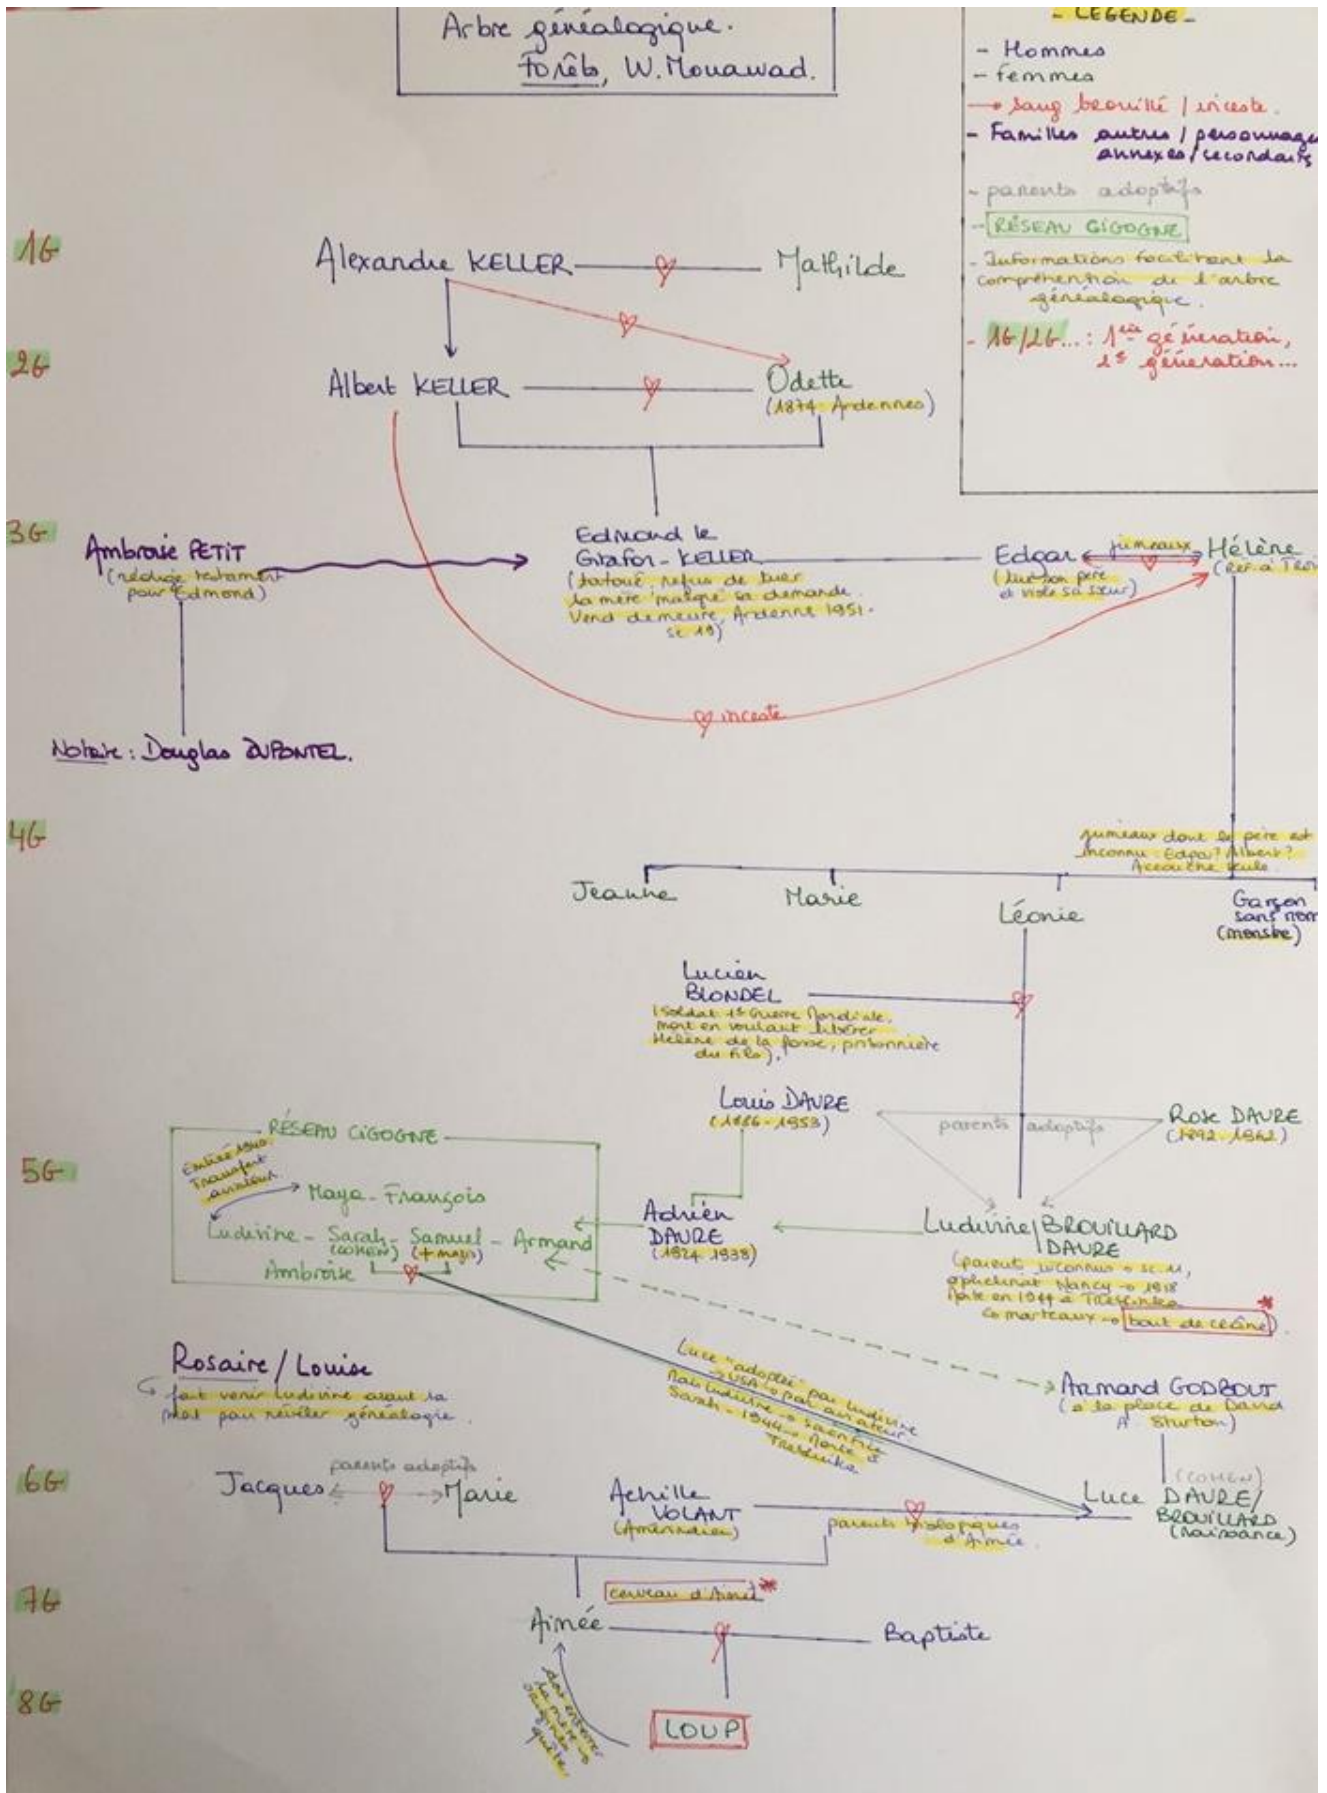 Arbre généalogique.
Forêts, W. Mouawad.
- LEGENDE -
- Hommes
- femmes
→ sang brouillé / inceste.
- Familles autres / personnage
annexes/secondaires
- parents adoptifs
- RÉSEAU CIGOGNE
- Informations facilitant la
compréhension de l'arbre
généalogique.
- 1G/2G...: 1ère génération,
2e génération...
1G
Alexandre KELLER
Mathilde
2G
Albert KELLER
Odette
(1874 Ardennes)
3G
Ambroise PETIT
(rédige testament
pour Edmond)
Edmond le
Girafon-KELLER
(tatoué refus de tuer
la mère malgré sa demande.
Vend demeure, Ardenne 1951.
sc 19)
Edgar
(tue son père
et viole sa sœur)
jumeaux
Hélène
inceste
Notaire : Douglas DUPONTEL.
4G
jumeaux dont le père est
inconnu : Edgar? Albert?
Accouche seule.
Jeanne
Marie
Léonie
Garçon
sans nom
(monstre)
Lucien
BLONDEL
(Soldat 1e Guerre Mondiale,
mort en voulant libérer
Hélène de la fosse, prisonnière
du fils).
Louis DAVRE
(1886-1953)
parents adoptifs
Rose DAVRE
(1892-1962)
5G
RÉSEAU CIGOGNE
Transfert
aviateur
Maya-François
Ludivine - Sarah - Samuel - Armand
(COHEN)
Ambroise
Adrien
DAVRE
(1924 1938)
Ludivine/BROUILLARD
DAVRE
(parents inconnus → sc 11,
orphelinat Nancy → 1918
Morte en 1944 à Treblinka
marteaux → bout de crâne) *
Luce "adoptée" par Ludivine
→ USA → par aviateur
Mais Ludivine → sacrifice
Sarah - 1944 → Morte à
Treblinka
Rosaire / Louise
fait venir Ludivine avant sa
mort pour révéler généalogie.
Armand GODBOUT
(à la place de David
A Sturton)
6G
Jacques
parents adoptifs
Marie
Achille
VOLANT
(Amérindien)
parents biologiques
d'Aimée.
Luce
(COHEN)
DAVRE/
BROUILLARD
(naissance)
7G
cerveau d'Aimée *
Aimée
Baptiste
8G
doit enterrer
sa mère →
origines
quête.
LOUP